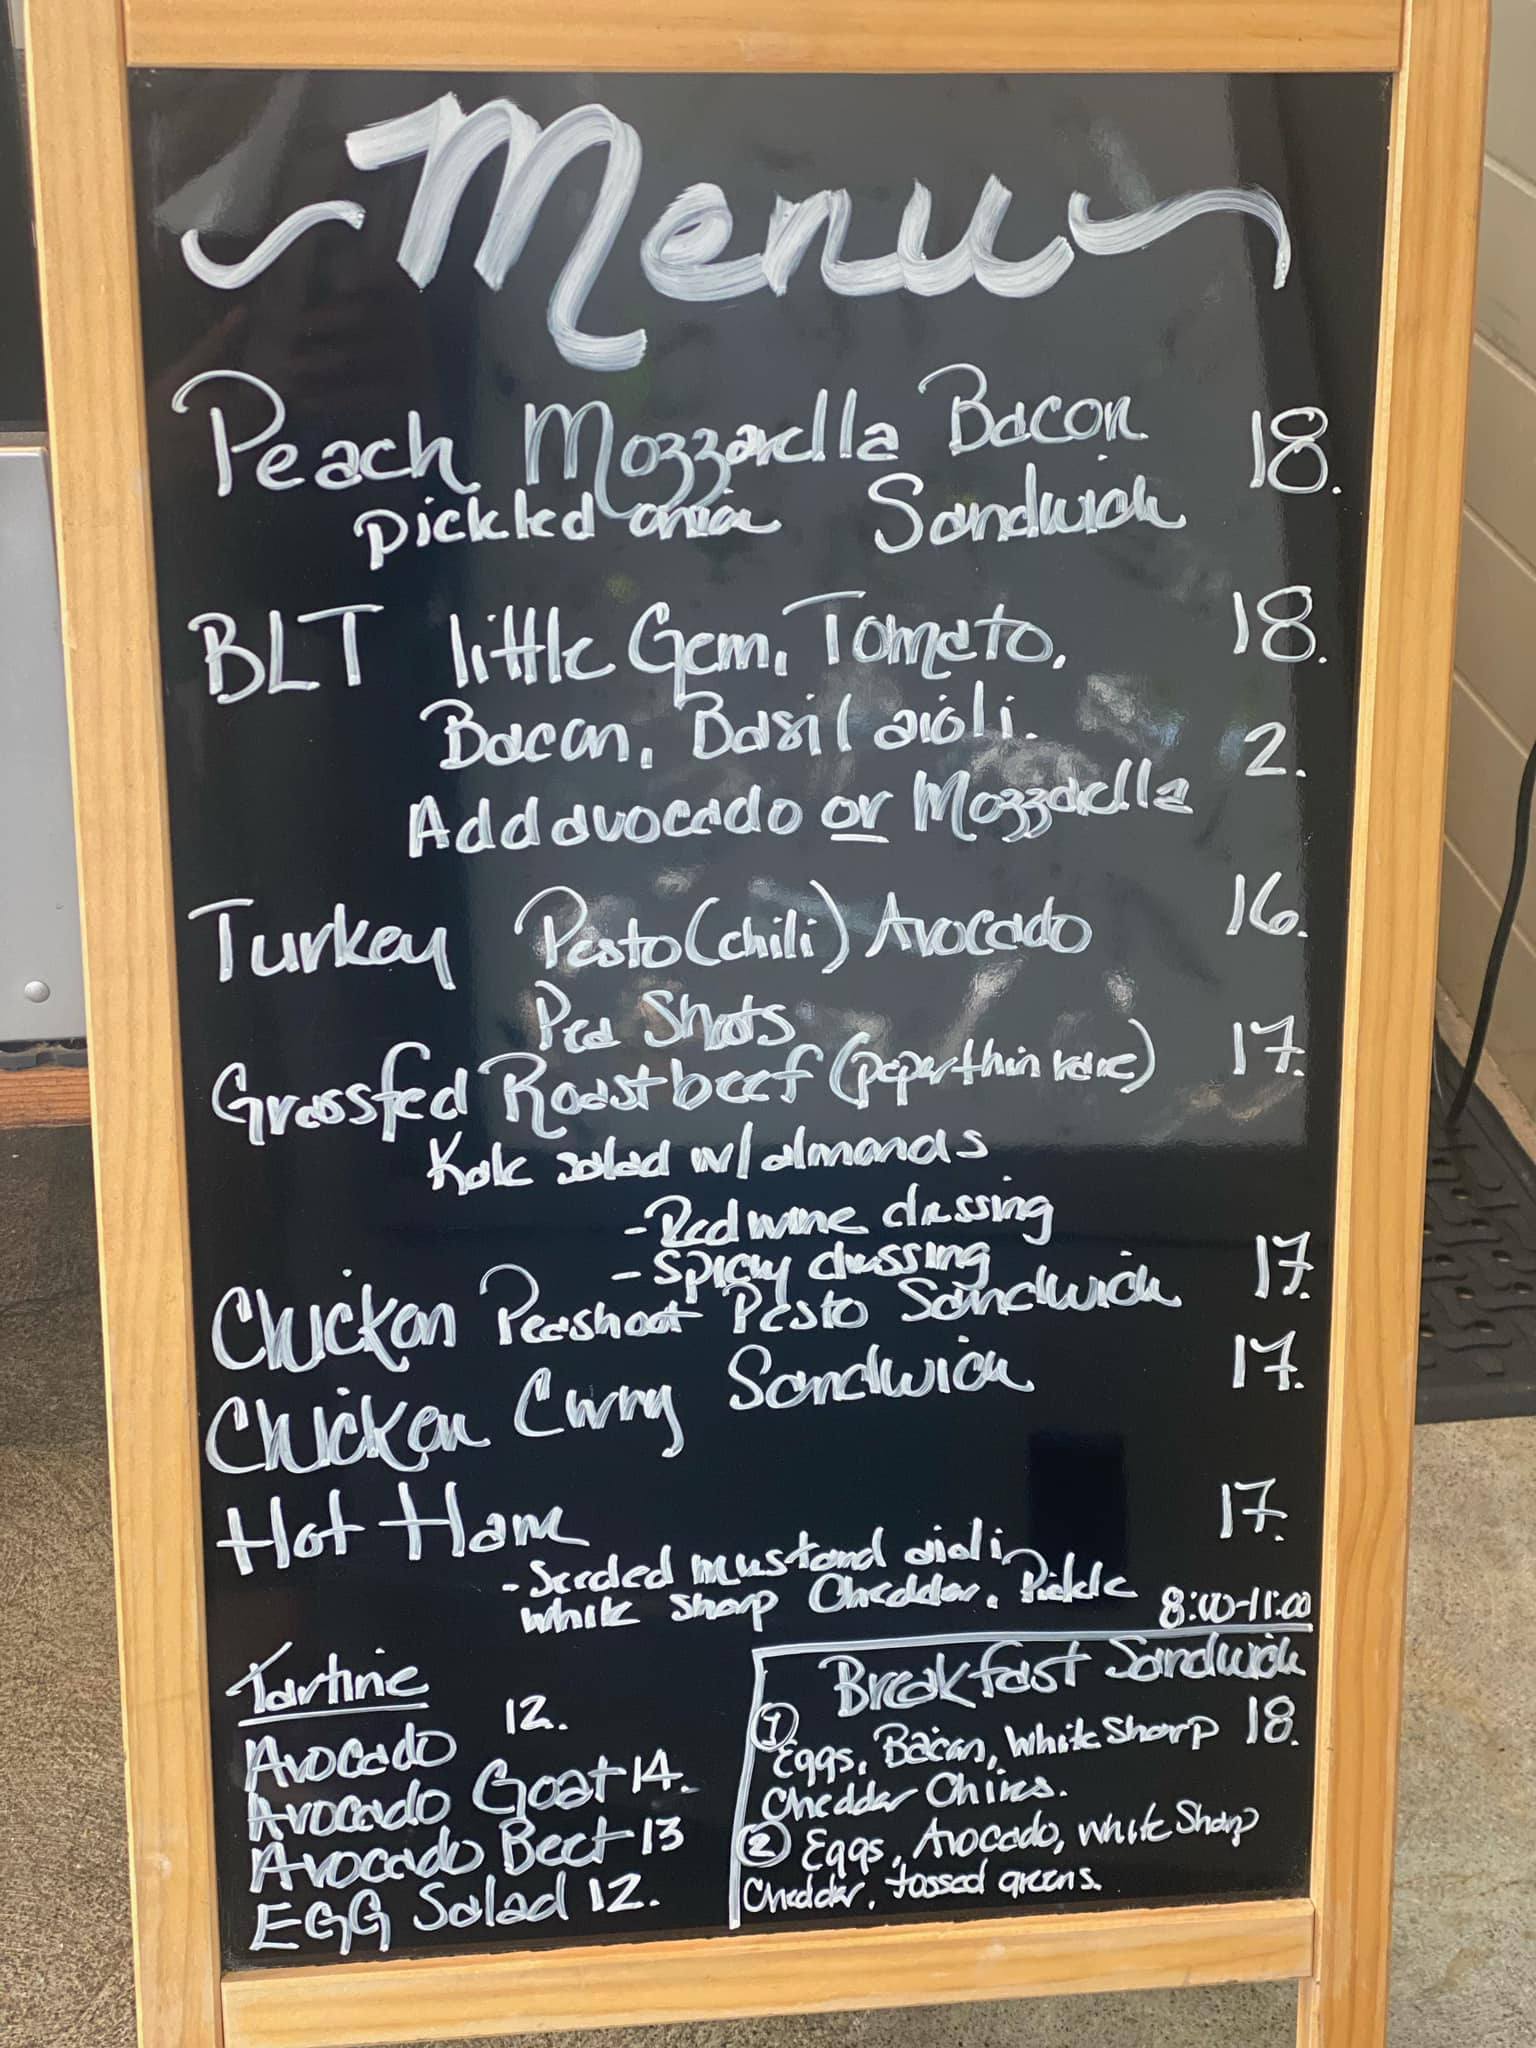 Menu
Peach Mozzarella Bacon 18.
pickled onion Sandwich
BLT little Gem, Tomato, 18.
Bacon, Basil aioli.
Add avocado or Mozzarella 2.
Turkey Pesto (chili) Avocado 16.
Pea Shoots
Grassfed Roast beef (paper thin rare) 17.
Kale salad w/ almonds
- Red wine dressing
- Spicy dressing
Chicken Peashoot Pesto Sandwich 17.
Chicken Curry Sandwich 17.
Hot Ham 17.
- Seeded mustard aioli,
white sharp Cheddar, Pickle
Tartine
Avocado 12.
Avocado Goat 14.
Avocado Beet 13
EGG Salad 12.
8:00-11:00
Breakfast Sandwich
1 Eggs, Bacon, White Sharp 18.
Cheddar Chives.
2 Eggs, Avocado, White Sharp
Cheddar, tossed greens.